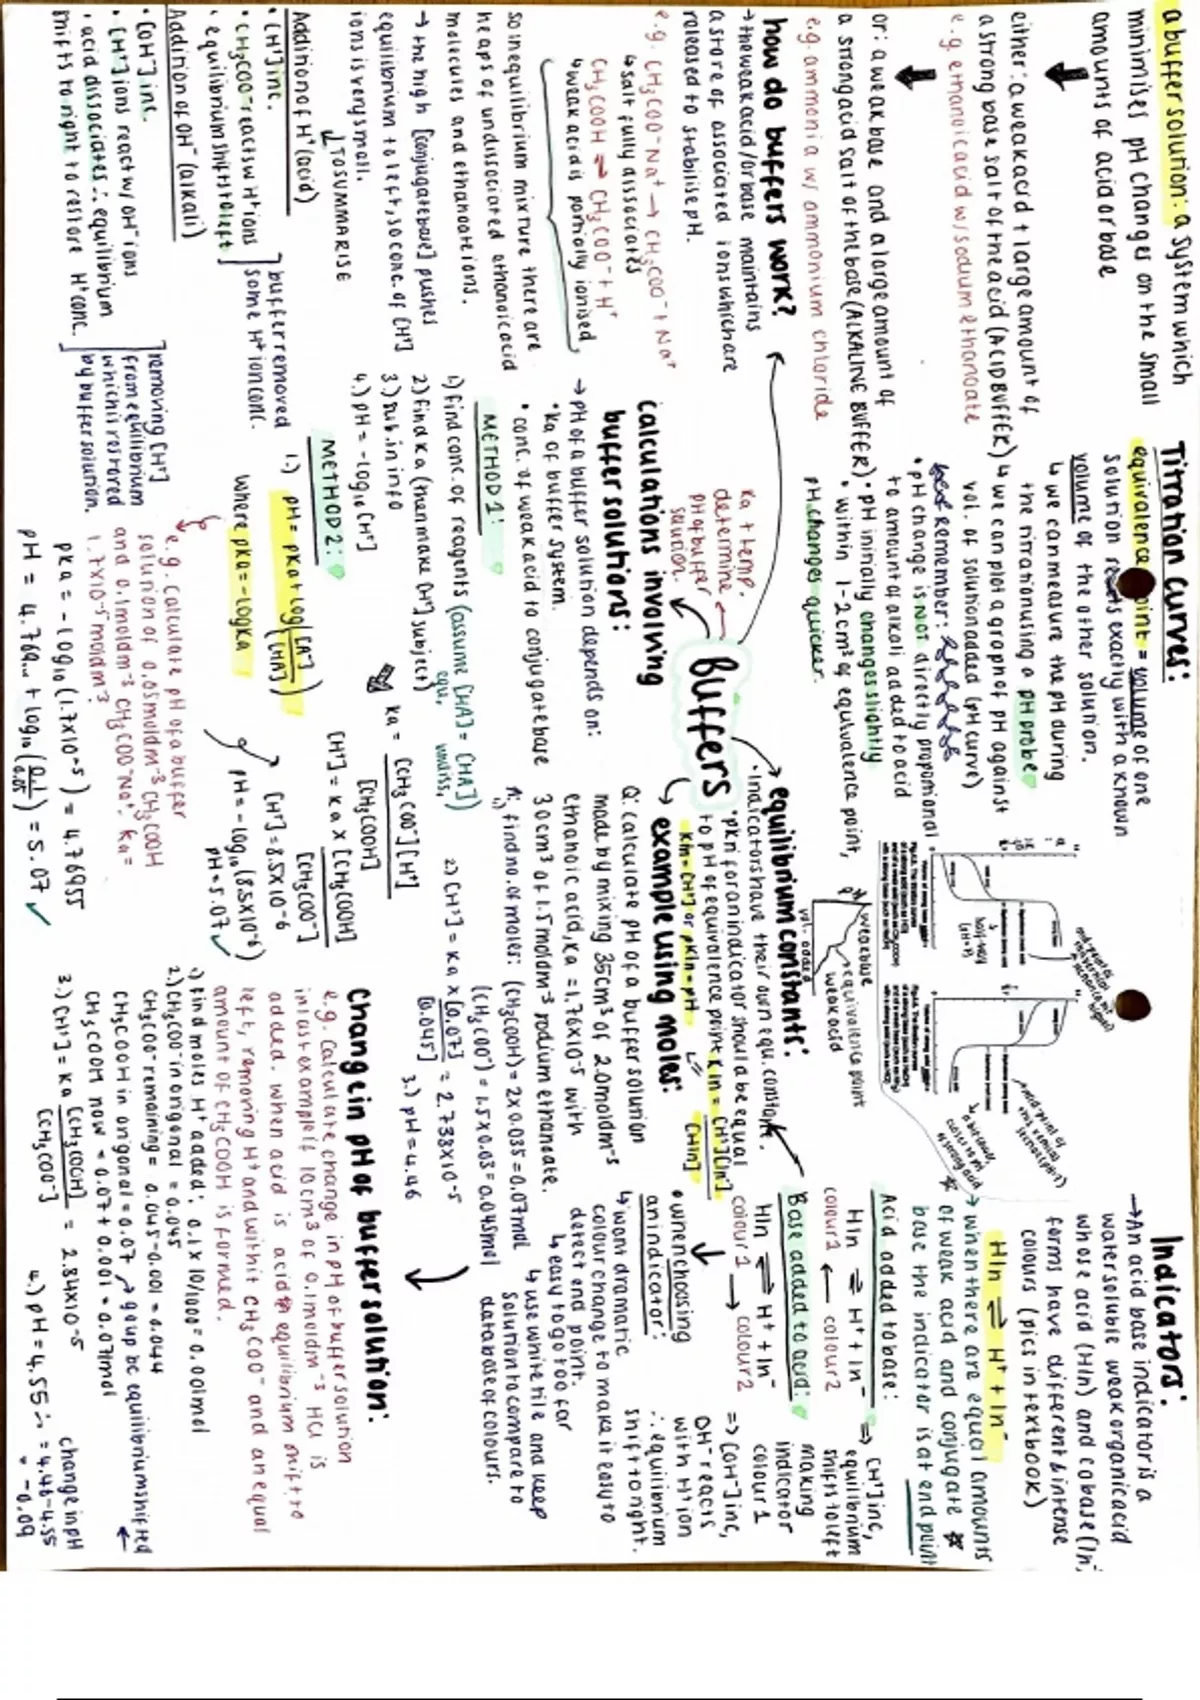 a buffer solution: a system which
minimises pH changes on the small
amounts of acid or base
either: a weak acid + large amount of
a strong base salt of the acid (ACID BUFFER)
e.g. ethanoic acid w/ sodium ethanoate
or: a weak base and a large amount of
a strong acid salt of the base (ALKALINE BUFFER)
e.g. ammonia w/ ammonium chloride
how do buffers work?
→ the weak acid/or base maintains
a store of associated ions which are
released to stabilise pH.
e.g. CH₃COO⁻Na⁺ → CH₃COO⁻ + Na⁺
↳ salt fully dissociates
CH₃COOH ⇌ CH₃COO⁻ + H⁺
↳ weak acid is partially ionised
so in equilibrium mixture there are
heaps of undissociated ethanoic acid
molecules and ethanoate ions.
→ the high [conjugate base] pushes
equilibrium to left, so conc. of [H⁺]
ions is very small.
↓ TO SUMMARISE
Addition of H⁺ (acid)
• [H⁺] inc.
• CH₃COO⁻ reacts w H⁺ ions
• equilibrium shifts to left
buffer removed
some H⁺ ion conc.
Addition of OH⁻ (alkali)
• [OH⁻] inc.
• [H⁺] ions react w/ OH⁻ ions
• acid dissociates ∴ equilibrium
shifts to right to restore H⁺ conc.
removing [H⁺]
from equilibrium
which is restored
by buffer solution.
Titration curves:
equivalence point = volume of one
solution reacts exactly with a known
volume of the other solution.
↳ we can measure the pH during
the titration using a pH probe
↳ we can plot a graph of pH against
vol. of solution added (pH curve)
remember:
• pH change is NOT directly proportional
to amount of alkali added to acid
• pH initially changes slightly
• within 1-2cm³ of equivalence point,
pH changes quicker.
Ka + temp.
determine
pH of buffer
solution.
Buffers
calculations involving
buffer solutions:
→ pH of a buffer solution depends on:
• Ka of buffer system.
• conc. of weak acid to conjugate base
METHOD 1:
1) find conc. of reagents (assume [HA] = [HA])
equ. undiss.
2) Find Ka (then make [H⁺] subject)
3.) sub. in info
4.) pH = -log₁₀[H⁺]
Ka = [CH₃COO⁻][H⁺]
[CH₃COOH]
[H⁺] = Ka × [CH₃COOH]
[CH₃COO⁻]
[H⁺] = 8.5×10⁻⁶
pH = -log₁₀(8.5×10⁻⁶)
pH = 5.07 ✓
METHOD 2:
1.) pH = pKa + log([A⁻]/[HA])
where pKa = -logKa
e.g. calculate pH of a buffer
solution of 0.05moldm⁻³ CH₃COOH
and 0.1moldm⁻³ CH₃COO⁻Na⁺. Ka =
1.7×10⁻⁵moldm⁻³
pKa = -log₁₀(1.7×10⁻⁵) = 4.76955
pH = 4.769... + log₁₀(0.1/0.05) = 5.07 ✓
weak base
equivalence point
weak acid
vol. added
equilibrium constants:
• indicators have their own equ. constant.
• pKn for an indicator should be equal
to pH of equivalence point
KIn = [H⁺][In⁻]
[HIn]
KIn = [H⁺] or pKIn = pH
example using moles:
Q: calculate pH of a buffer solution
made by mixing 35cm³ of 2.0moldm⁻³
ethanoic acid, Ka = 1.76×10⁻⁵ with
30cm³ of 1.5moldm⁻³ sodium ethanoate.
A: 1.) find no. of moles: (CH₃COOH) = 2×0.035 = 0.07mol
(CH₃COO⁻) = 1.5×0.03 = 0.045mol
2) [H⁺] = Ka × [0.07] = 2.738×10⁻⁵
[0.045]
3.) pH = 4.46
Change in pH of buffer solution:
e.g. Calculate change in pH of buffer solution
in last example if 10cm³ of 0.1moldm⁻³ HCl is
added. when acid is acid equilibrium shift to
left, removing H⁺ and with it CH₃COO⁻ and an equal
amount of CH₃COOH is formed.
1) find moles H⁺ added: 0.1 × 10/1000 = 0.001mol
2) CH₃COO⁻ in origonal = 0.045
CH₃COO⁻ remaining = 0.045-0.001 = 0.044
CH₃COOH in origonal = 0.07 → goes up bc equilibrium shifted ←
CH₃COOH now = 0.07 + 0.001 = 0.071mol
3.) [H⁺] = Ka [CH₃COOH] = 2.84×10⁻⁵
[CH₃COO⁻]
4.) pH = 4.55 ∴
change in pH
= 4.46-4.55
= -0.09
Indicators:
→ An acid base indicator is a
water soluble weak organic acid
whose acid (HIn) and cobase (In⁻)
forms have different & intense
colours (pics in textbook)
HIn ⇌ H⁺ + In⁻
→ when there are equal amounts
of weak acid and conjugate
base the indicator is at end point
Acid added to base:
HIn ⇌ H⁺ + In⁻
colour1 ← colour2
⇒ [H⁺] inc,
equilibrium
shifts to left
making
indicator
colour 1
Base added to acid:
HIn ⇌ H⁺ + In⁻
colour1 → colour2
⇒ [OH⁻] inc,
OH⁻ reacts
with H⁺ ion
∴ equilibrium
shift to right.
• when choosing
an indicator:
↳ want dramatic
colour change to make it easy to
detect end point.
↳ easy to go too far
↳ use white tile and keep
solution to compare to
database of colours.